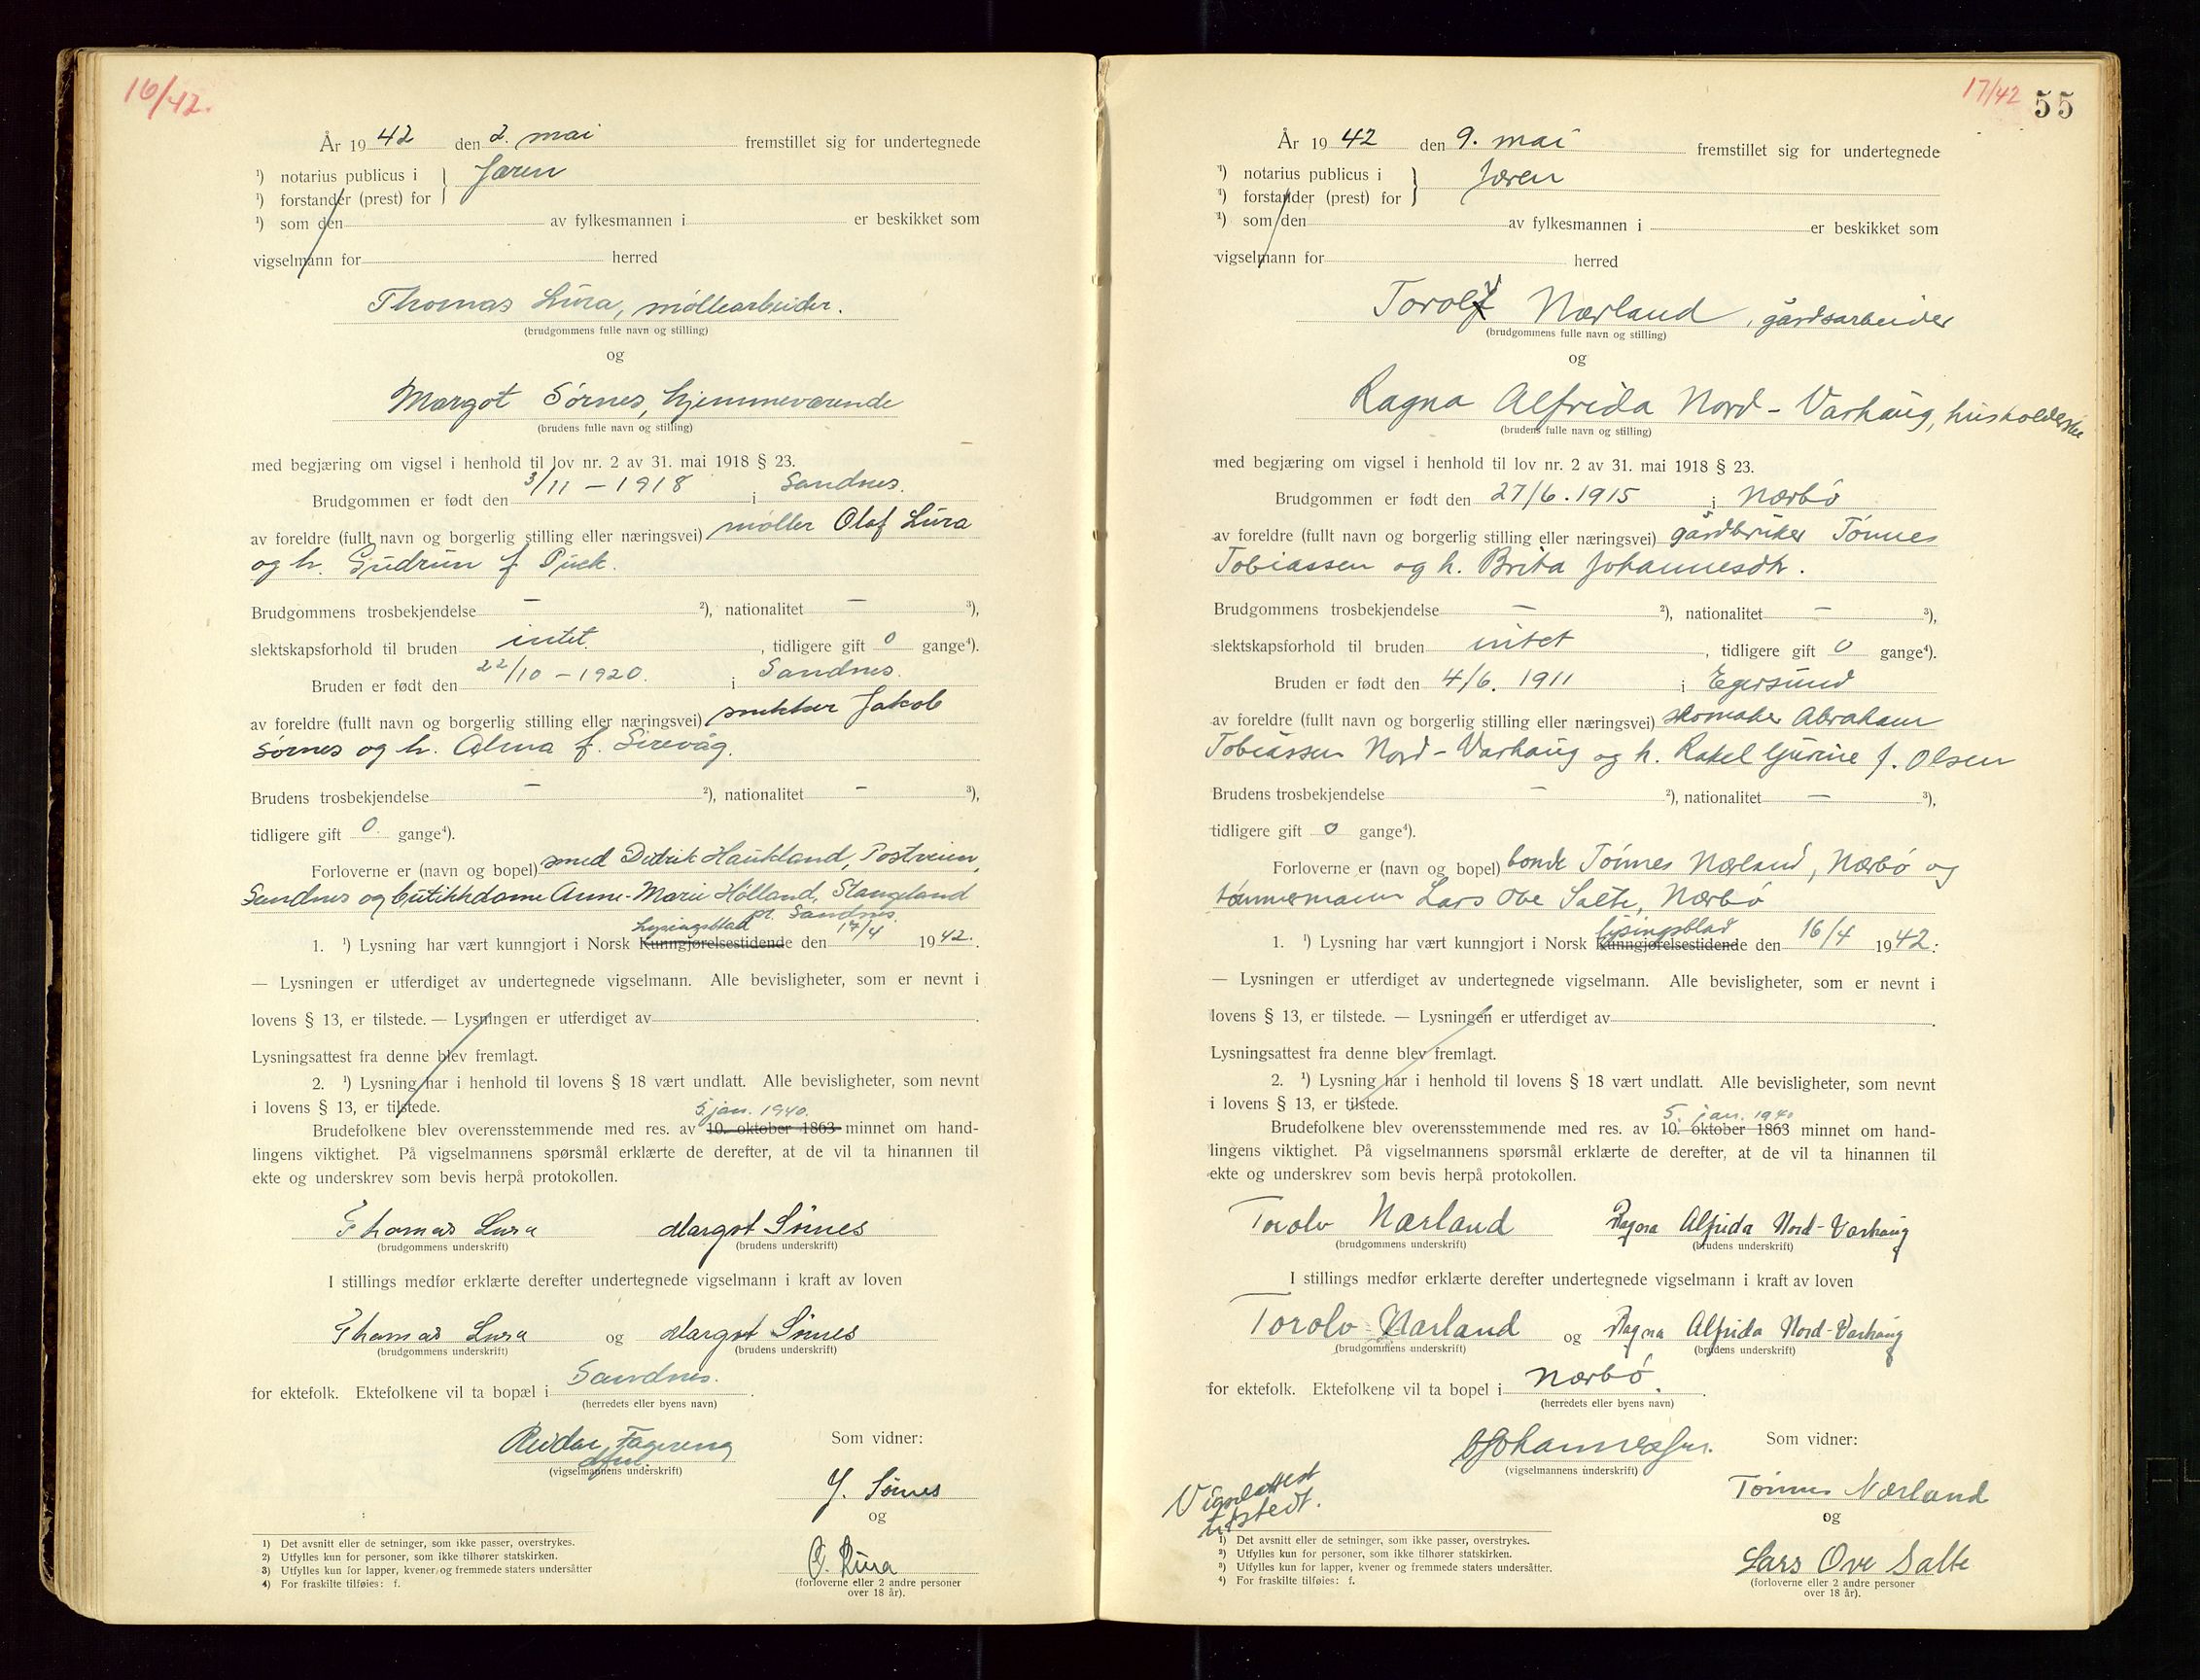 16/42.
År 1942 den 2. mai fremstillet sig for undertegnede
¹) notarius publicus i } Jæren
¹) forstander (prest) for
¹) som den av fylkesmannen i er beskikket som
vigselmann for herred
Thomas Lura, møllearbeider.
(brudgommens fulle navn og stilling)
og
Margot Sørnes, hjemmeværende
(brudens fulle navn og stilling)
med begjæring om vigsel i henhold til lov nr. 2 av 31. mai 1918 § 23.
Brudgommen er født den 3/11 - 1918 i Sandnes.
av foreldre (fullt navn og borgerlig stilling eller næringsvei) møller Olaf Lura
og h. Gudrun f. Puck.
Brudgommens trosbekjendelse — ²), nationalitet — ³),
slektskapsforhold til bruden intet. , tidligere gift 0 gange⁴).
Bruden er født den 22/10 - 1920. i Sandnes.
av foreldre (fullt navn og borgerlig stilling eller næringsvei) snekker Jakob
Sørnes og h. Alma f. Sirevåg.
Brudens trosbekjendelse — ²), nationalitet — ³),
tidligere gift 0. gange⁴).
Forloverne er (navn og bopel) smed Didrik Haukland, Postveien,
Sandnes og butikkdame Anne-Marie Holland, Stangeland
pr. Sandnes.
Lysingsblad
1. ¹) Lysning har vært kunngjort i Norsk Kunngjørelsestidende den 17/4 1942.
— Lysningen er utferdiget av undertegnede vigselmann. Alle bevisligheter, som er nevnt i
lovens § 13, er tilstede. — Lysningen er utferdiget av .
Lysningsattest fra denne blev fremlagt.
2. ¹) Lysning har i henhold til lovens § 18 vært undlatt. Alle bevisligheter, som nevnt
i lovens § 13, er tilstede.
5. jan. 1940.
Brudefolkene blev overensstemmende med res. av 10. oktober 1863 minnet om hand-
lingens viktighet. På vigselmannens spørsmål erklærte de derefter, at de vil ta hinannen til
ekte og underskrev som bevis herpå protokollen.
Thomas Lura Margot Sørnes
(brudgommens underskrift) (brudens underskrift)
I stillings medfør erklærte derefter undertegnede vigselmann i kraft av loven
Thomas Lura og Margot Sørnes
(brudgommens underskrift) (brudens underskrift)
for ektefolk. Ektefolkene vil ta bopæl i Sandnes. .
(herredets eller byens navn)
Reidar Fagereng
dful.
(vigselmannens underskrift)
Som vidner:
J. Sørnes
og
O. Lura
(forloverne eller 2 andre personer
over 18 år).
1) Det avsnitt eller de setninger, som ikke passer, overstrykes.
2) Utfylles kun for personer, som ikke tilhører statskirken.
3) Utfylles kun for lapper, kvener og fremmede staters undersåtter
4) For fraskilte tilføies: f.
17/42 55
År 1942 den 9. mai fremstillet sig for undertegnede
¹) notarius publicus i } Jæren
¹) forstander (prest) for
¹) som den av fylkesmannen i er beskikket som
vigselmann for herred
Torolv Nærland, gårdsarbeider
(brudgommens fulle navn og stilling)
og
Ragna Alfrida Nord-Varhaug, husholderske
(brudens fulle navn og stilling)
med begjæring om vigsel i henhold til lov nr. 2 av 31. mai 1918 § 23.
Brudgommen er født den 27/6. 1915 i Nærbø
av foreldre (fullt navn og borgerlig stilling eller næringsvei) gårdbruker Tønnes
Tobiassen og h. Brita Johannesdtr.
Brudgommens trosbekjendelse — ²), nationalitet — ³),
slektskapsforhold til bruden intet , tidligere gift 0 gange⁴).
Bruden er født den 4/6. 1911 i Egersund
av foreldre (fullt navn og borgerlig stilling eller næringsvei) skomaker Abraham
Tobiassen Nord-Varhaug og h. Rakel Gurine f. Olsen
Brudens trosbekjendelse — ²), nationalitet — ³),
tidligere gift 0 gange⁴).
Forloverne er (navn og bopel) bonde Tønnes Nærland, Nærbø og
tømmermann Lars Ove Salte, Nærbø
lysingsblad
1. ¹) Lysning har vært kunngjort i Norsk Kunngjørelsestidende den 16/4 1942:
— Lysningen er utferdiget av undertegnede vigselmann. Alle bevisligheter, som er nevnt i
lovens § 13, er tilstede. — Lysningen er utferdiget av .
Lysningsattest fra denne blev fremlagt.
2. ¹) Lysning har i henhold til lovens § 18 vært undlatt. Alle bevisligheter, som nevnt
i lovens § 13, er tilstede.
5. jan. 1940
Brudefolkene blev overensstemmende med res. av 10. oktober 1863 minnet om hand-
lingens viktighet. På vigselmannens spørsmål erklærte de derefter, at de vil ta hinannen til
ekte og underskrev som bevis herpå protokollen.
Torolv Nærland Ragna Alfrida Nord-Varhaug
(brudgommens underskrift) (brudens underskrift)
I stillings medfør erklærte derefter undertegnede vigselmann i kraft av loven
Torolv Nærland og Ragna Alfrida Nord-Varhaug
(brudgommens underskrift) (brudens underskrift)
for ektefolk. Ektefolkene vil ta bopel i Nærbø. .
(herredets eller byens navn)
(vigselmannens underskrift)
Vigselattest
utstedt.
Som vidner:
Tønnes Nærland
og
Lars Ove Salte
(forloverne eller 2 andre personer
over 18 år).
1) Det avsnitt eller de setninger, som ikke passer, overstrykes.
2) Utfylles kun for personer, som ikke tilhører statskirken.
3) Utfylles kun for lapper, kvener og fremmede staters undersåtter.
4) For fraskilte tilføies: f.